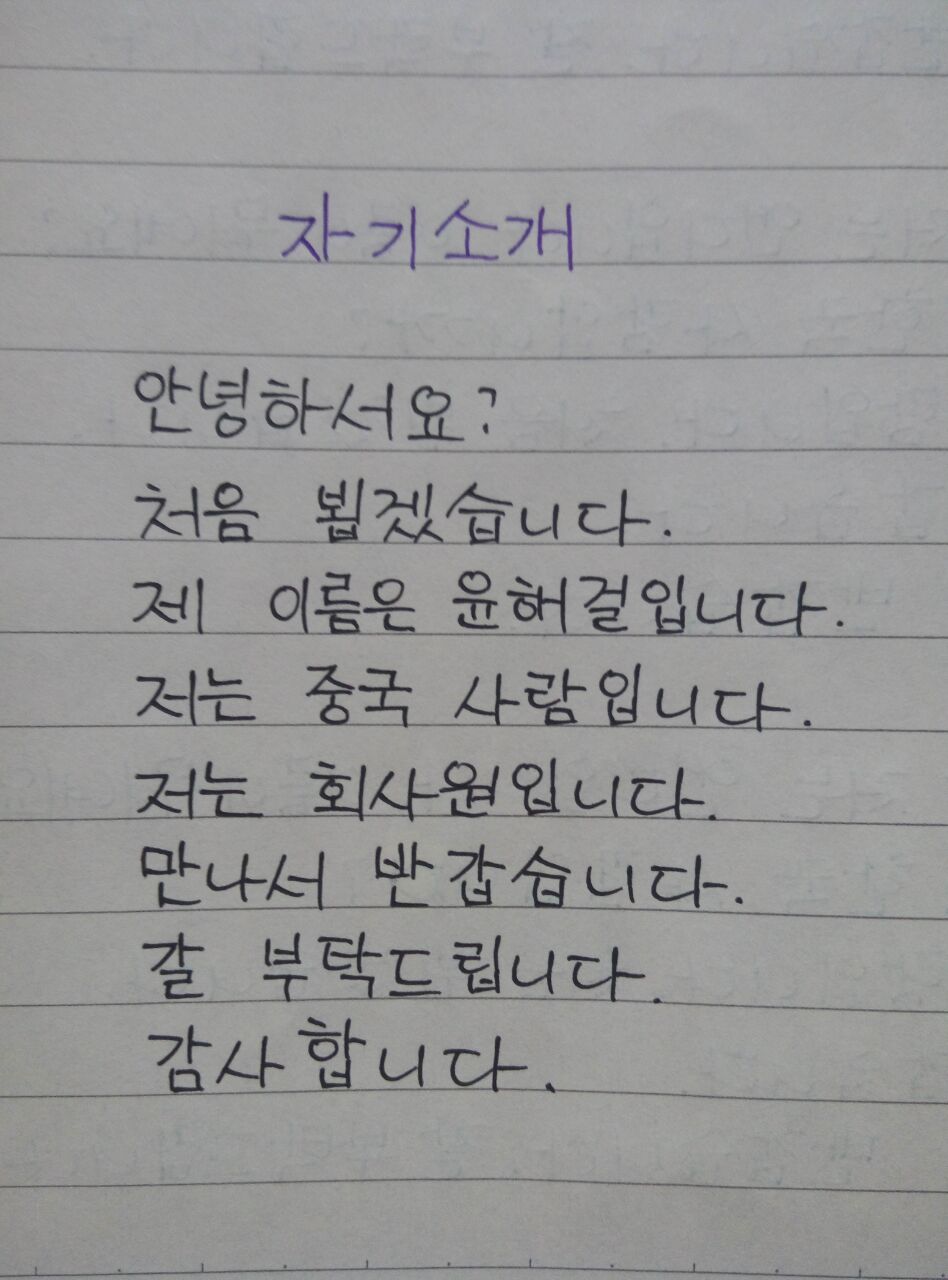 자기소개
안녕하서요?
처음 뵙겠습니다.
제 이름은 윤해걸입니다.
저는 중국 사람입니다.
저는 회사원입니다.
만나서 반갑습니다.
잘 부탁드립니다.
감사합니다.